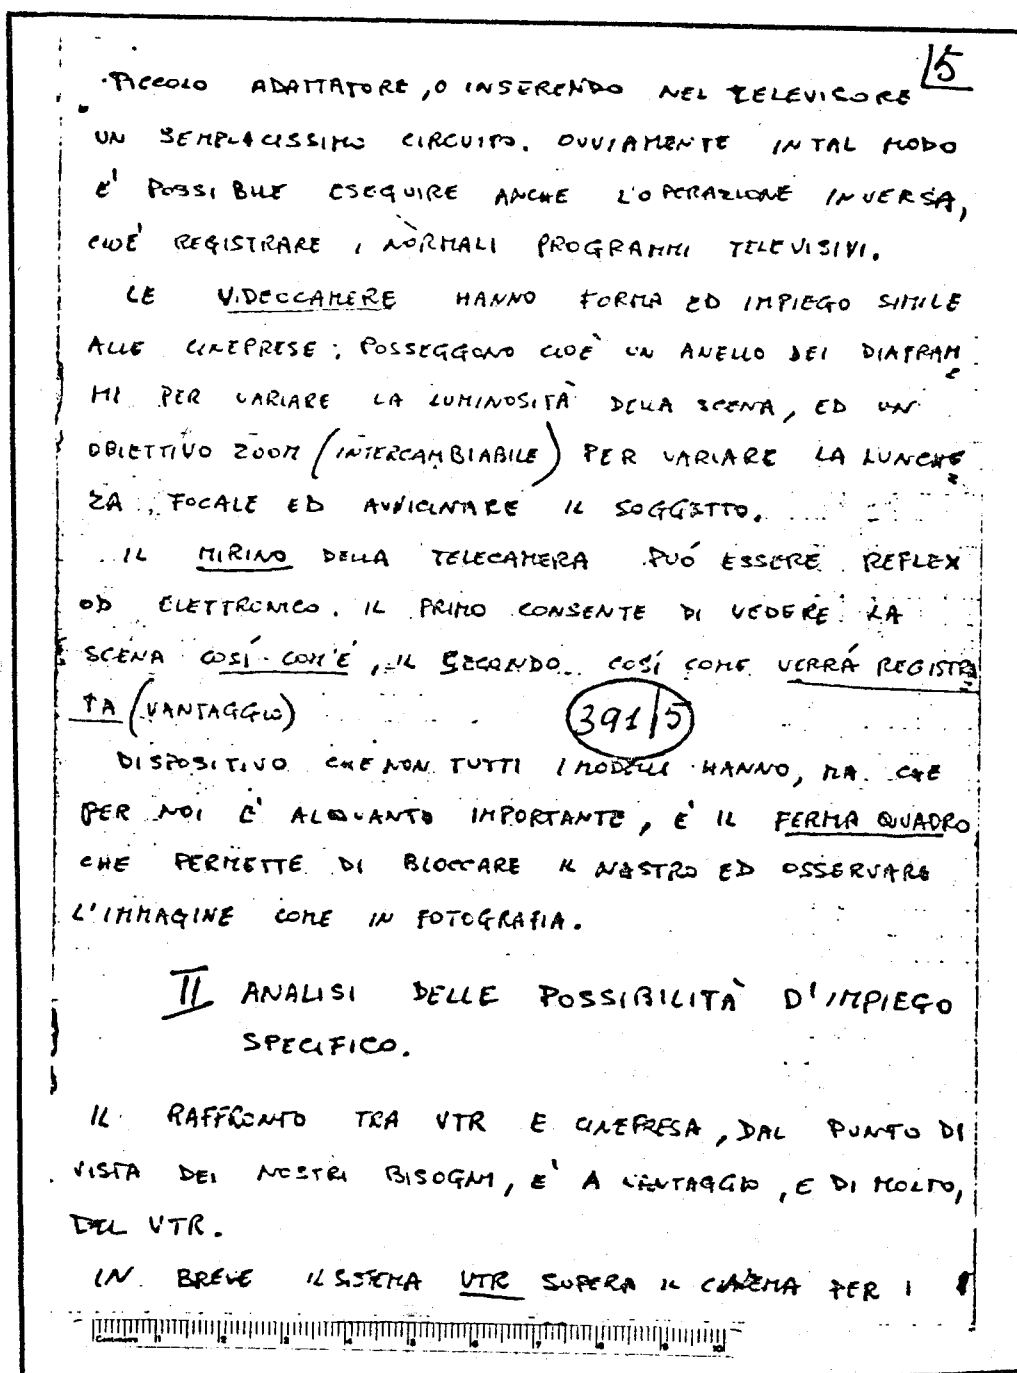 5
PICCOLO ADATTATORE, O INSERENDO NEL TELEVISORE
UN SEMPLICISSIMO CIRCUITO. OVVIAMENTE IN TAL MODO
E' POSSIBILE ESEGUIRE ANCHE L'OPERAZIONE INVERSA,
CIOÈ REGISTRARE I NORMALI PROGRAMMI TELEVISIVI.
LE VIDEOCAMERE HANNO FORMA ED IMPIEGO SIMILE
ALLE CINEPRESE: POSSEGGONO CIOÈ UN ANELLO DEI DIAFRAM
MI PER VARIARE LA LUMINOSITÀ DELLA SCENA, ED UN
OBIETTIVO ZOOM (INTERCAMBIABILE) PER VARIARE LA LUNGHEZ
ZA FOCALE ED AVVICINARE IL SOGGETTO.
IL MIRINO DELLA TELECAMERA PUÓ ESSERE REFLEX
OD ELETTRONICO. IL PRIMO CONSENTE DI VEDERE LA
SCENA COSÍ COM'É, IL SECONDO COSÍ COME VERRÁ REGISTRA
TA (VANTAGGIO)
391/5
DISPOSITIVO CHE NON TUTTI I MODELLI HANNO, MA CHE
PER NOI E' ALQUANTO IMPORTANTE, E' IL FERMA QUADRO
CHE PERMETTE DI BLOCCARE IL NASTRO ED OSSERVARE
L'IMMAGINE COME IN FOTOGRAFIA.
II ANALISI DELLE POSSIBILITÀ D'IMPIEGO
SPECIFICO.
IL RAFFRONTO TRA VTR E CINEPRESA, DAL PUNTO DI
VISTA DEI NOSTRI BISOGNI, E' A VANTAGGIO, E DI MOLTO,
DEL VTR.
IN BREVE IL SISTEMA VTR SUPERA IL CINEMA PER I
Centimetres 1 2 3 4 5 6 7 8 9 10